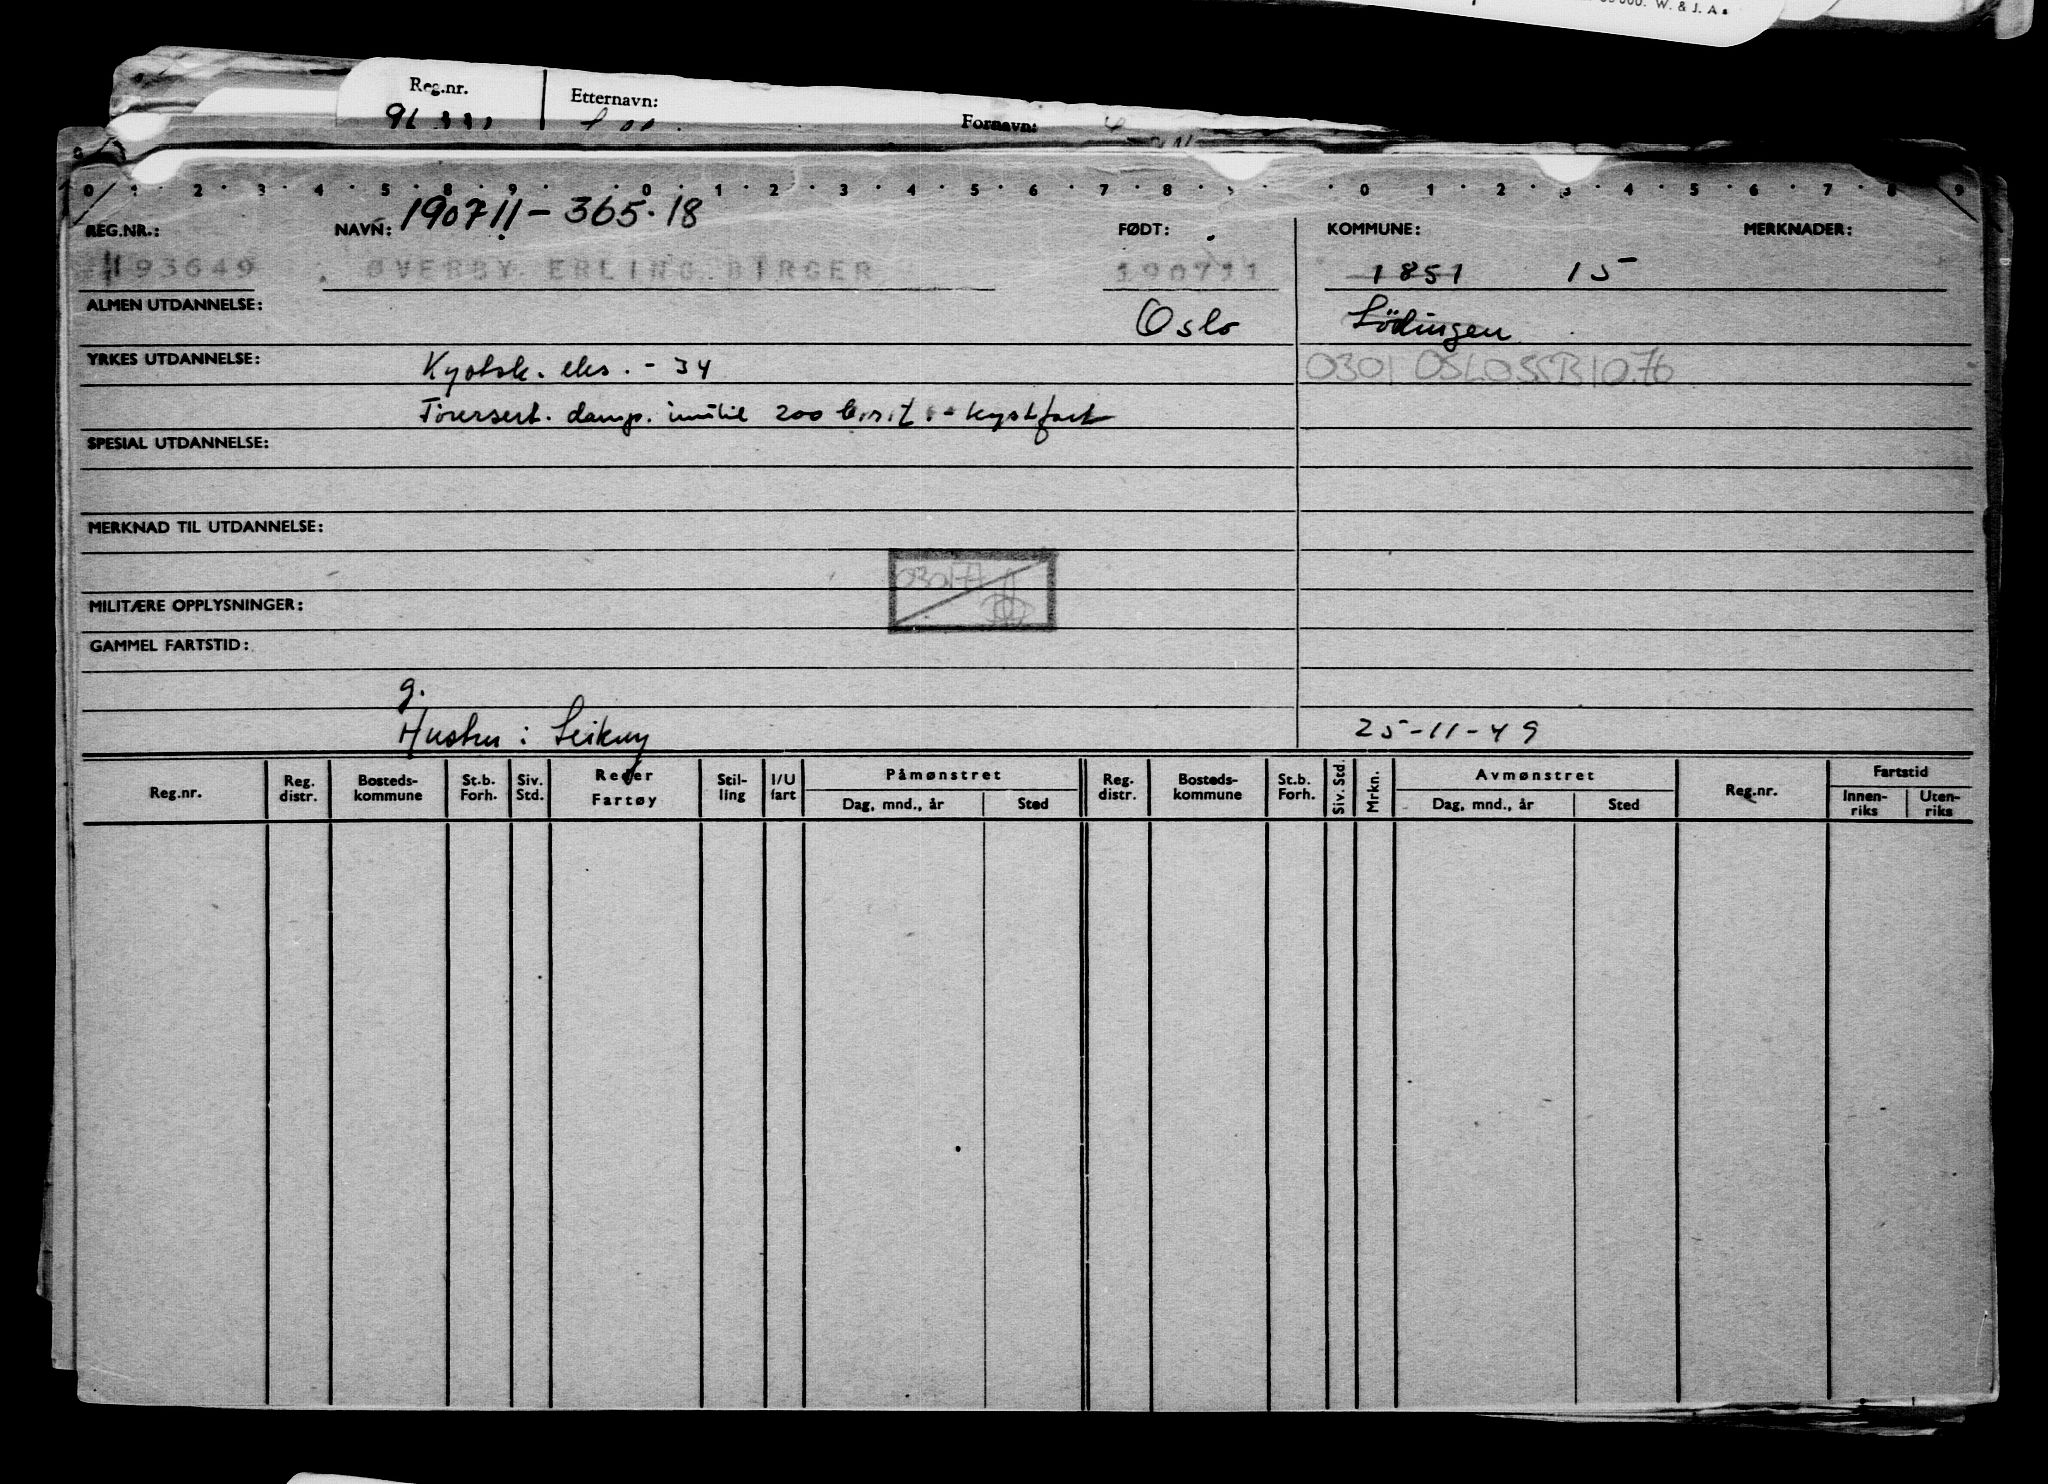 000. W. & J. A.
Reg.nr. Etternavn: Fornavn:
0 1 2 3 4 5 8 9 0 1 2 3 4 5 6 7 8 0 1 2 3 4 5 6 7 8 9
190711-365.18
REG.NR.: NAVN: FØDT: KOMMUNE: MERKNADER:
193649 ØVERBY ERLING BIRGER 190711 1851 15
ALMEN UTDANNELSE: Oslo Lödingen
YRKES UTDANNELSE: Kystsk. eks. - 34 0301 OSLO SSB 10.76
Förersert. damp. inntil 200 b.r.t. - kystfart
SPESIAL UTDANNELSE:
MERKNAD TIL UTDANNELSE:
03017
MILITÆRE OPPLYSNINGER:
GAMMEL FARTSTID:
g.
Hustru : 25-11-49
Reg.nr. Reg. distr. Bosteds-kommune St.b. Forh. Siv. Std. Reder Fartøy Stil-ling I/U fart Påmønstret Dag, mnd., år Sted Reg. distr. Bosteds-kommune St.b. Forh. Siv. Std. Mrkn. Avmønstret Dag, mnd., år Sted Reg.nr. Fartstid Innen-riks Uten-riks